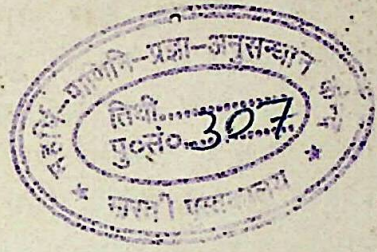 महर्षि--पाणिनि--प्रज्ञा--अनुसन्धान केन्द्र
तिथी................
पु०सं०...307...